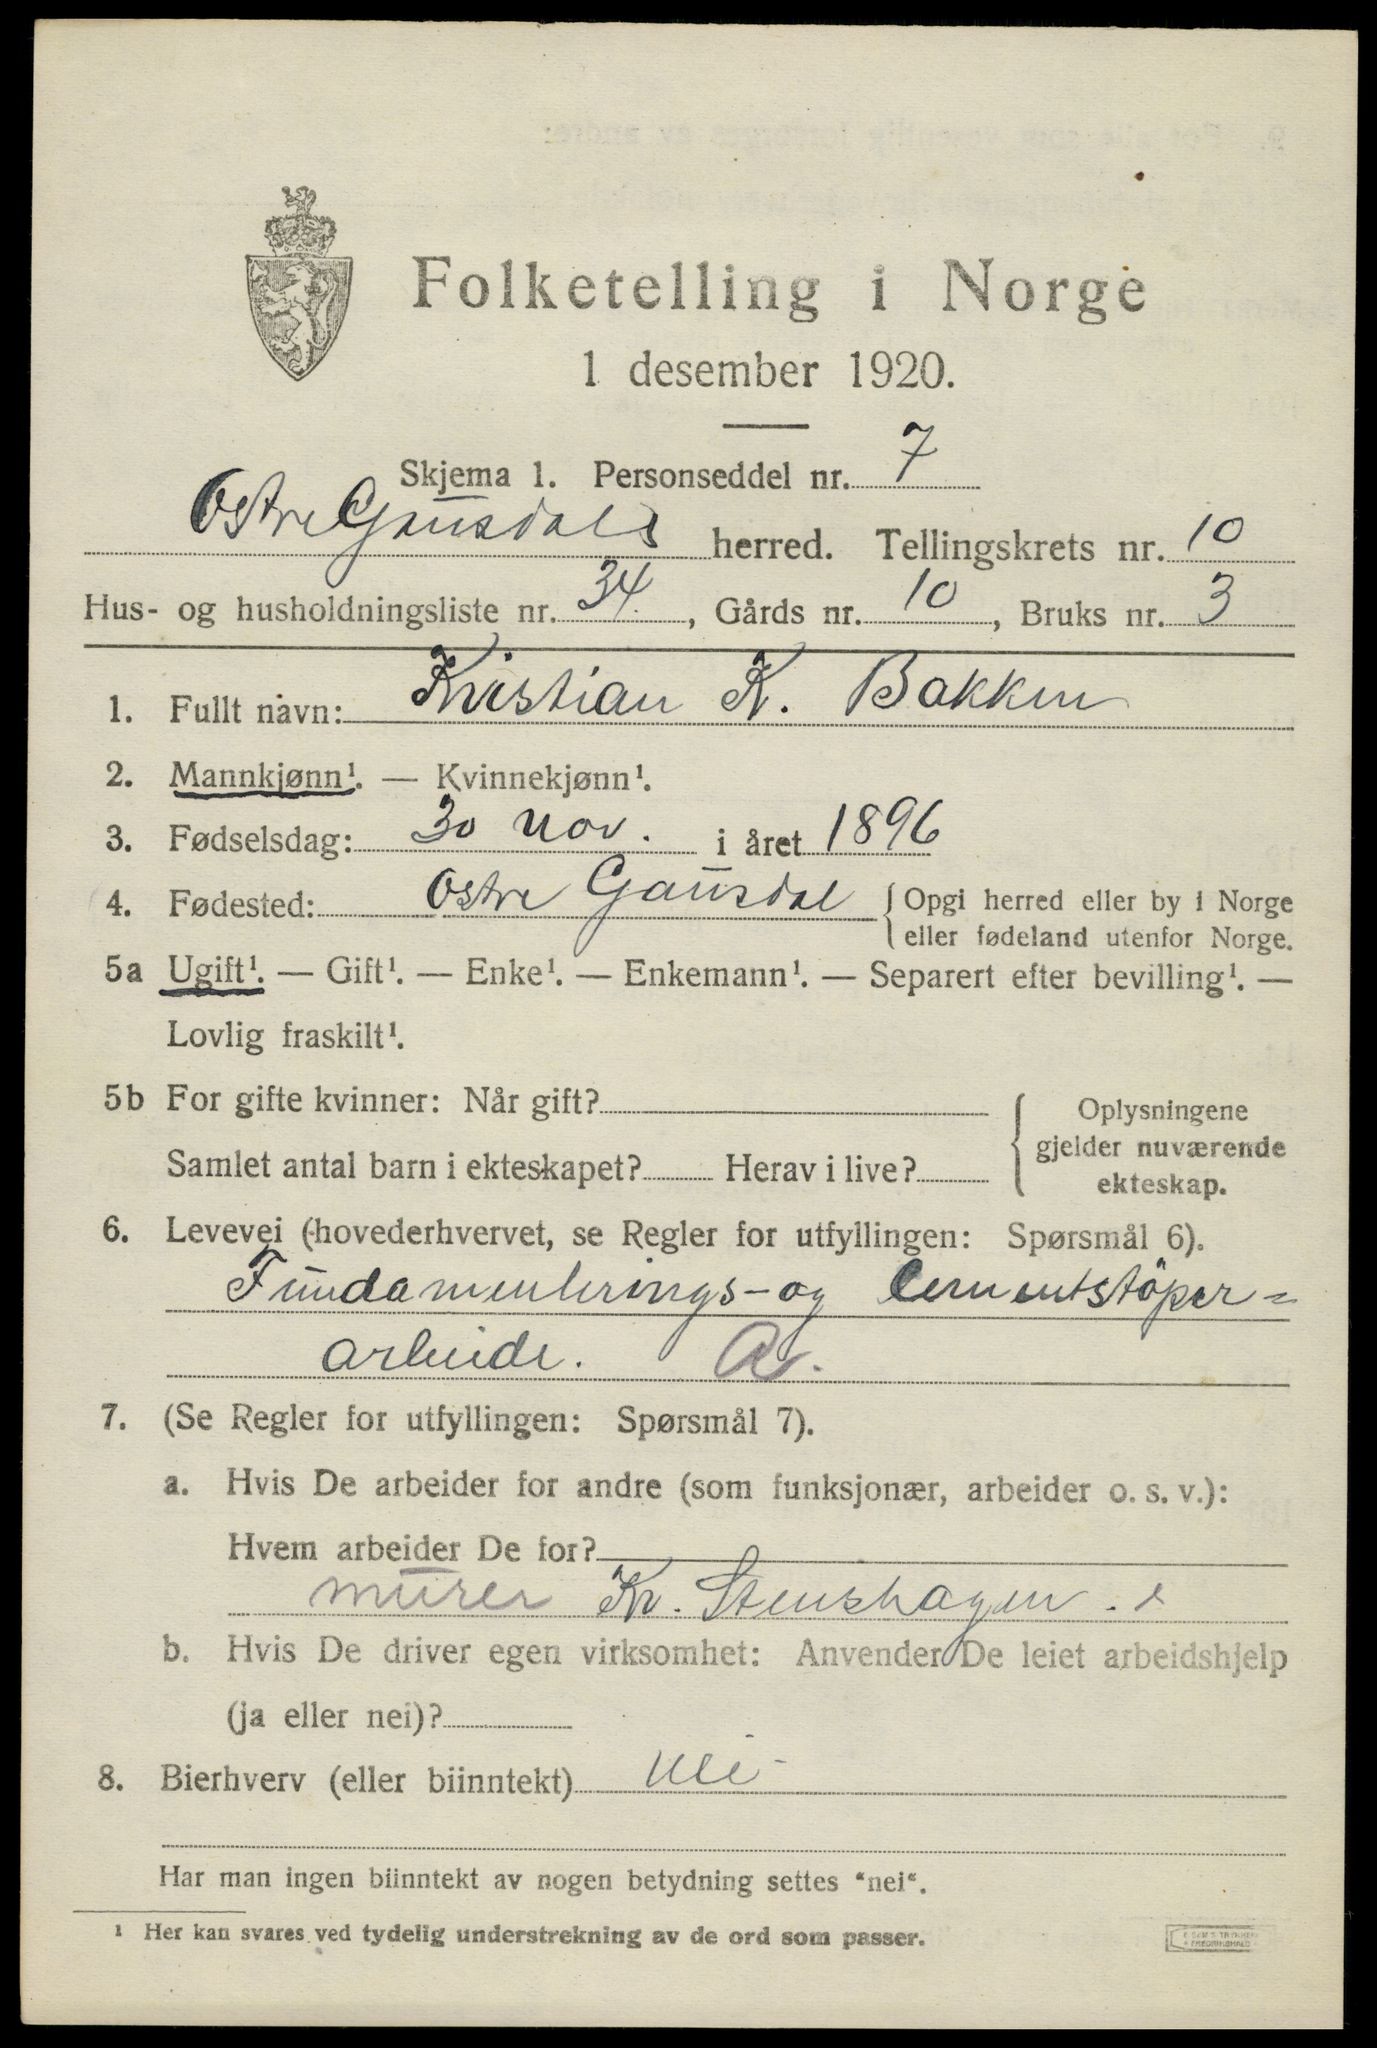 Folketelling i Norge
1 desember 1920.
Skjema 1. Personseddel nr. 7
Østre Gausdals herred. Tellingskrets nr. 10
Hus- og husholdningsliste nr. 34., Gårds nr. 10, Bruks nr. 3
1. Fullt navn: Kristian K. Bakken
2. Mannkjønn¹. — Kvinnekjønn¹.
3. Fødselsdag: 30 nov. i året 1896
4. Fødested: Østre Gausdal { Opgi herred eller by i Norge
eller fødeland utenfor Norge.
5a Ugift¹. — Gift¹. — Enke¹. — Enkemann¹. — Separert efter bevilling¹. —
Lovlig fraskilt¹.
5b For gifte kvinner: Når gift?
Samlet antal barn i ekteskapet? Herav i live?
{ Oplysningene
gjelder nuværende
ekteskap.
6. Levevei (hovederhvervet, se Regler for utfyllingen: Spørsmål 6).
Fundamenterings- og Cementstöper=
arbeide. A.
7. (Se Regler for utfyllingen: Spørsmål 7).
a. Hvis De arbeider for andre (som funksjonær, arbeider o. s. v.):
Hvem arbeider De for?
murer Kr. Stenshagen.
b. Hvis De driver egen virksomhet: Anvender De leiet arbeidshjelp
(ja eller nei)?
8. Bierhverv (eller biinntekt) nei
Har man ingen biinntekt av nogen betydning settes "nei".
¹ Her kan svares ved tydelig understrekning av de ord som passer.